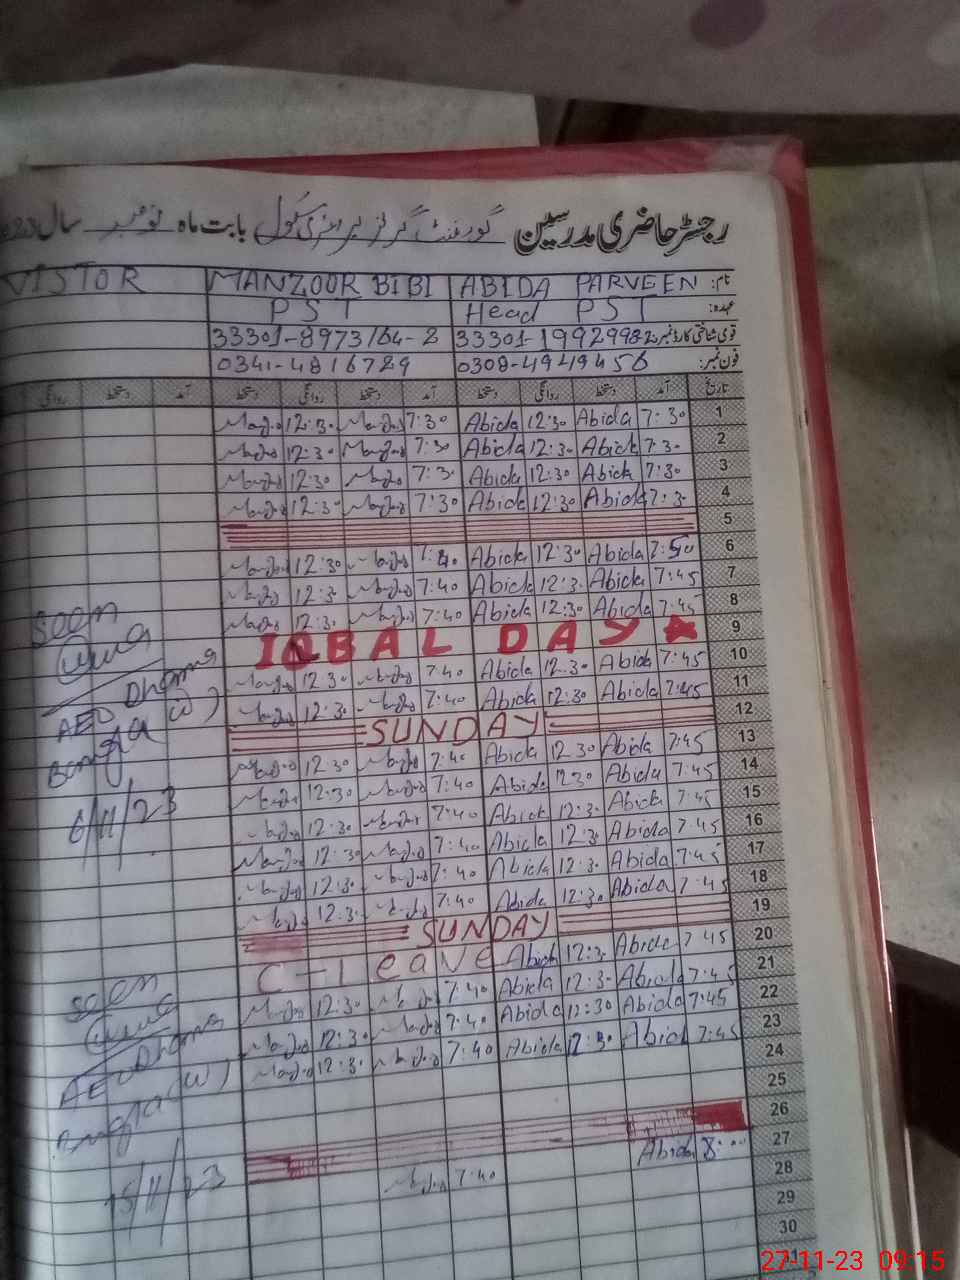 رجسٹر حاضری مدرسین گورنمنٹ گرلز پرائمری سکول بابت ماہ نومبر سال
نام: ABIDA PARVEEN MANZOOR BIBI VISTOR
عہدہ: Head PST PST
قومی شناختی کارڈ نمبر: 33301-8973164-8
فون نمبر: 0308-4949456 0341-4816729
تاریخ آمد دستخط روانگی دستخط آمد دستخط روانگی دستخط آمد دستخط روانگی
1 7:30 Abida 12:30 Abida 7:30 12:30
2 7:30 Abida 12:30 Abida 7:30 12:30
3 7:30 Abida 12:30 Abida 7:30 12:30
4 7:30 Abida 12:30 Abida 7:30 12:30
5
6 7:50 Abida 12:30 Abida 12:30
7 7:45 Abida 12:30 Abida 7:40 12:30
8 7:45 Abida 12:30 Abida 7:40 12:30
9 IQBAL DAY
10 7:45 Abida 12:30 Abida 7:40 12:30
11 7:45 Abida 12:30 Abida 7:40 12:30
12 SUNDAY
13 7:45 Abida 12:30 Abida 7:40 12:30
14 7:45 Abida 12:30 Abida 7:40 12:30
15 7:45 Abida 12:30 Abida 7:40 12:30
16 7:45 Abida 12:30 Abida 7:40 12:30
17 7:45 Abida 12:30 Abida 7:40 12:30
18 7:45 Abida 12:30 Abida 7:40 12:30
19 SUNDAY
20 7:45 Abida 12:30 Abida C-leave
21 7:45 Abida 12:30 Abida 7:40 12:30
22 7:45 Abida 12:30 Abida 7:40 12:30
23 7:45 Abida 12:30 Abida 7:40 12:30
24
25
26
27 8:00 Abida 7:40
28
29
30
31
Seen
AEO Dhama
Bangla (W)
6/11/23
Seen
AEO Dhama
Bangla (W)
15/11/23
27-11-23 09:15